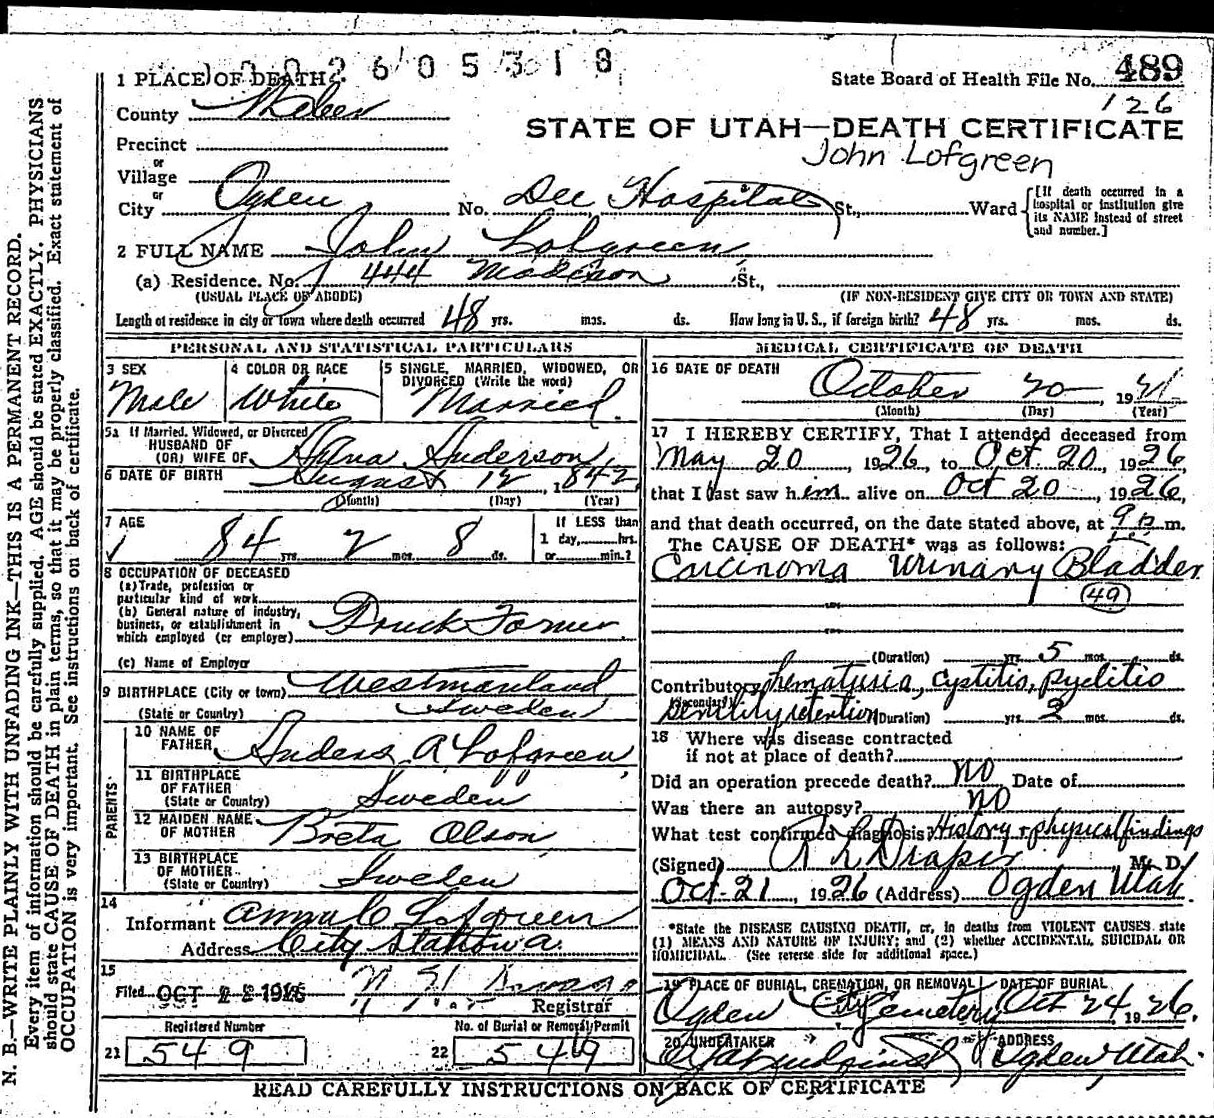 N. B.—WRITE PLAINLY WITH UNFADING INK—THIS IS A PERMANENT RECORD.
Every item of information should be carefully supplied. AGE should be stated EXACTLY. PHYSICIANS
should state CAUSE OF DEATH in plain terms, so that it may be properly classified. Exact statement of
OCCUPATION is very important. See instructions on back of certificate.
2 6 0 5 3 1 8
State Board of Health File No. 489
126
1 PLACE OF DEATH
County Weber
STATE OF UTAH—DEATH CERTIFICATE
John Lofgreen
Precinct
or
Village
or
City Ogden No. Dee Hospital St., Ward
[If death occurred in a
hospital or institution give
its NAME instead of street
and number.]
2 FULL NAME John Lofgreen
(a) Residence. No. 444 Madison St.,
(USUAL PLACE OF ABODE) (IF NON-RESIDENT GIVE CITY OR TOWN AND STATE)
Length of residence in city or town where death occurred 48 yrs. mos. ds. How long in U. S., if foreign birth? 48 yrs. mos. ds.
PERSONAL AND STATISTICAL PARTICULARS
3 SEX
Male
4 COLOR OR RACE
White
5 SINGLE, MARRIED, WIDOWED, OR
DIVORCED (Write the word)
Married
5a If Married, Widowed, or Divorced
HUSBAND OF
(OR) WIFE OF Anderson
6 DATE OF BIRTH August 12, 1842
(Month) (Day) (Year)
7 AGE
84 yrs. 2 mos. 8 ds.
If LESS than
1 day, hrs.
or min.?
8 OCCUPATION OF DECEASED
(a) Trade, profession or
particular kind of work
(b) General nature of industry,
business, or establishment in
which employed (or employer) Truck Farmer
(c) Name of Employer
9 BIRTHPLACE (City or town) Westmanland
(State or Country) Sweden
PARENTS
10 NAME OF
FATHER Anders A Lofgreen
11 BIRTHPLACE
OF FATHER
(State or Country) Sweden
12 MAIDEN NAME
OF MOTHER Breta Olson
13 BIRTHPLACE
OF MOTHER
(State or Country) Sweden
14
Informant Anna C Lofgreen
Address City
15
Filed OCT 22 1926
Registrar
Registered Number No. of Burial or Removal Permit
21 549 22 549
MEDICAL CERTIFICATE OF DEATH
16 DATE OF DEATH
October 20, 19
(Month) (Day) (Year)
17 I HEREBY CERTIFY, That I attended deceased from
May 20, 1926, to Oct. 20, 1926,
that I last saw him alive on Oct 20, 1926,
and that death occurred, on the date stated above, at 9 p. m.
The CAUSE OF DEATH* was as follows:
Carcinoma Urinary Bladder
49
(Duration) yrs. 5 mos. ds.
Contributory hematuria, cystitis, pyelitis
(Secondary)
Senility, retention (Duration) yrs. 2 mos. ds.
18 Where was disease contracted
if not at place of death?
Did an operation precede death? NO Date of
Was there an autopsy? NO
What test confirmed diagnosis? History + physical findings
(Signed) R L Draper, M. D.
Oct-21, 1926 (Address) Ogden Utah.
*State the DISEASE CAUSING DEATH, or, in deaths from VIOLENT CAUSES, state
(1) MEANS AND NATURE OF INJURY; and (2) whether ACCIDENTAL, SUICIDAL OR
HOMICIDAL. (See reverse side for additional space.)
19 PLACE OF BURIAL, CREMATION, OR REMOVAL
Ogden City Cemetery
DATE OF BURIAL
Oct 24, 1926.
20 UNDERTAKER
ADDRESS
Ogden Utah.
READ CAREFULLY INSTRUCTIONS ON BACK OF CERTIFICATE